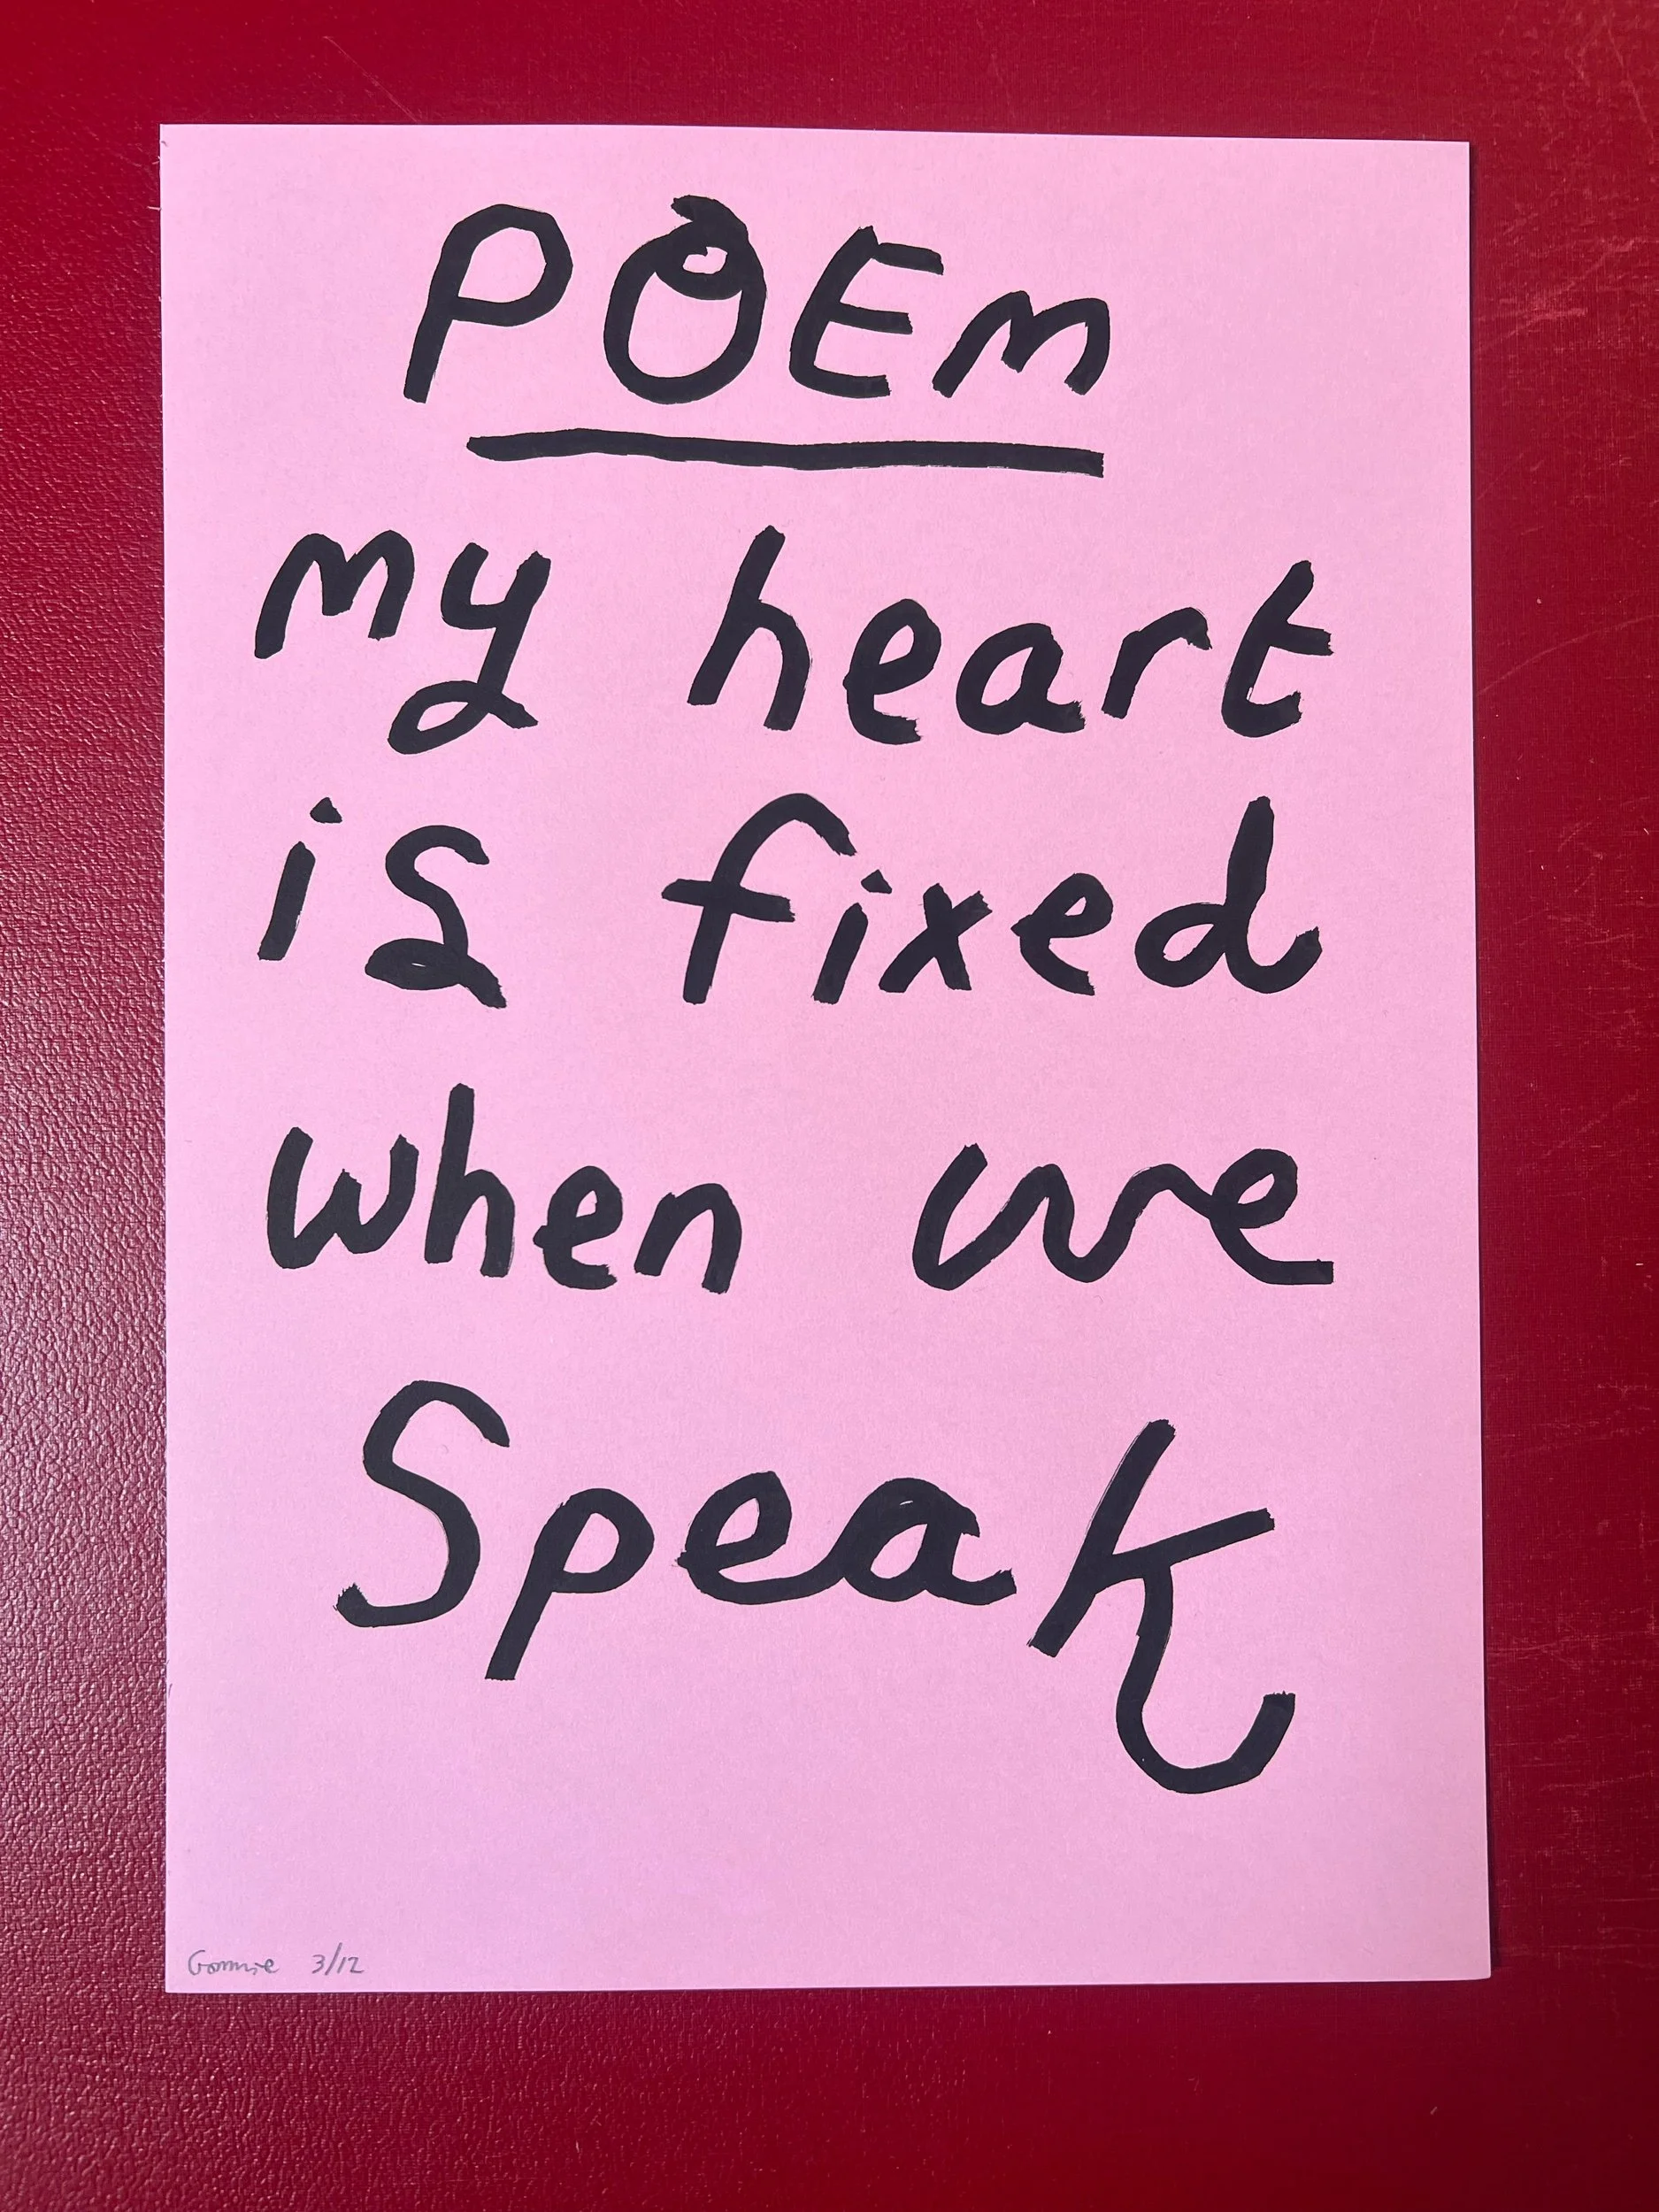 POEM
my heart
is fixed
when we
Speak
3/12